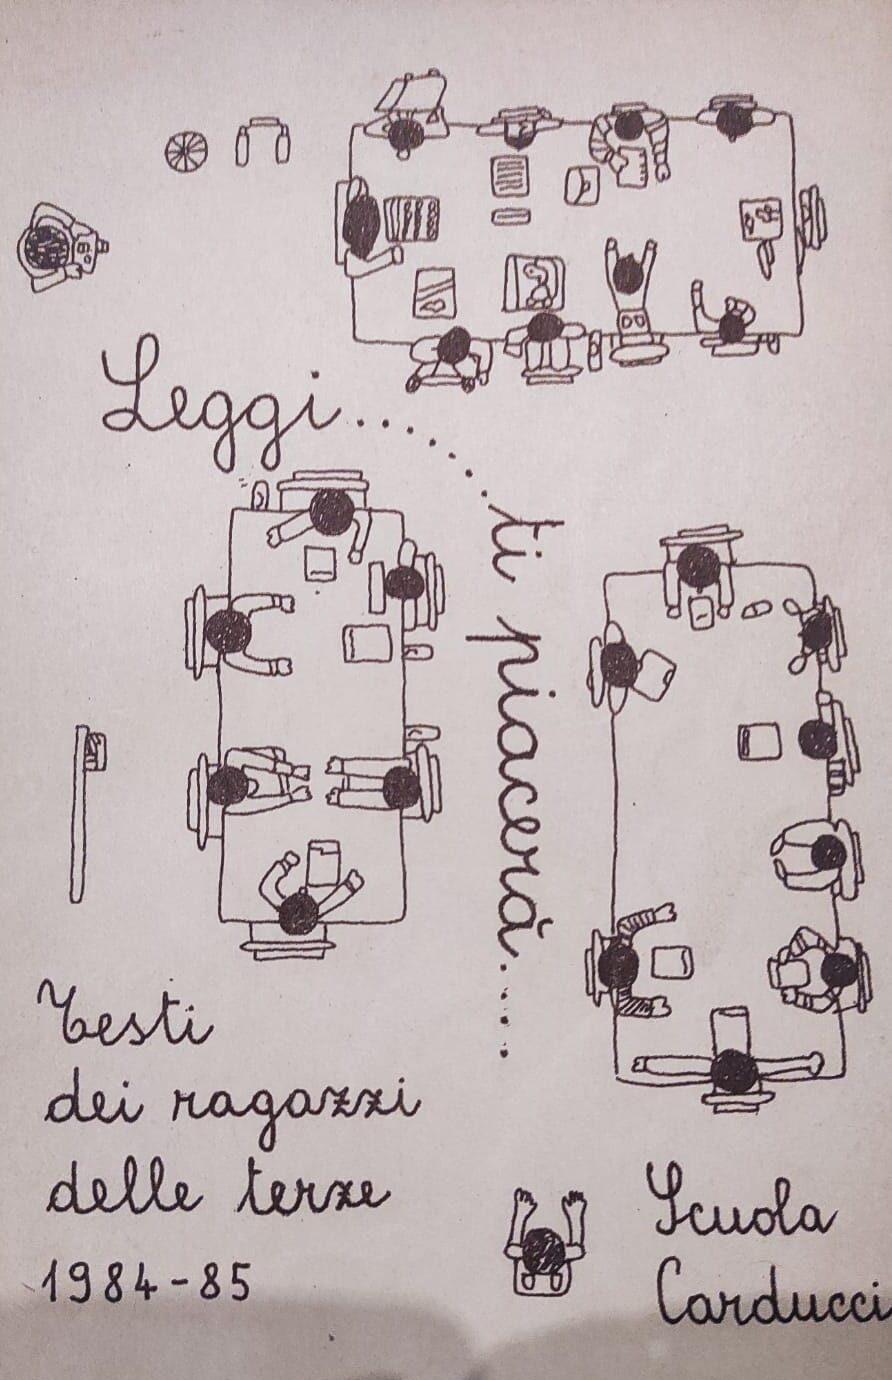 Leggi....
ti piacerà....
Testi
dei ragazzi
delle terze
1984-85
Scuola
Carducci